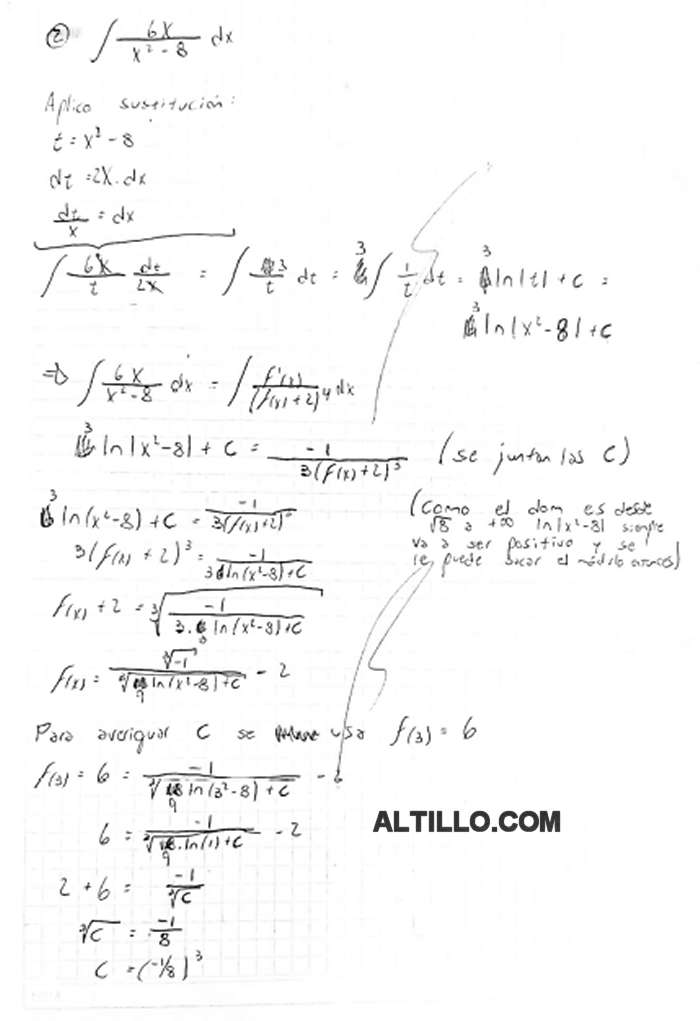 ② ∫ 6x/(x² - 8) dx
Aplico sustitución:
t = x² - 8
dt = 2x.dx
dt/x = dx
∫ 6x/t dt/2x = ∫ 3/t dt = 3 ∫ 1/t dt = 3 ln|t| + C =
3 ln|x² - 8| + C
=> ∫ 6x/(x² - 8) dx = ∫ f'(x)/(f(x) + 2)⁴ dx
3 ln|x² - 8| + C = -1/(3(f(x) + 2)³) (se juntan las C)
3 ln(x² - 8) + C = -1/(3(f(x) + 2)³)
(Como el dom es desde
√8 a +∞ ln|x² - 8| siempre
va a ser positivo y se
le puede sacar el módulo entonces)
3(f(x) + 2)³ = -1/(3 ln(x² - 8) + C)
f(x) + 2 = ∛(-1/(3.3 ln(x² - 8) + C))
f(x) = ∛-1/∛(9 ln(x² - 8) + C) - 2
Para averiguar C se usa f(3) = 6
f(3) = 6 = -1/∛(9 ln(3² - 8) + C) - 2
6 = -1/∛(9.ln(1) + C) - 2
ALTILLO.COM
2 + 6 = -1/∛C
∛C = -1/8
C = (-1/8)³